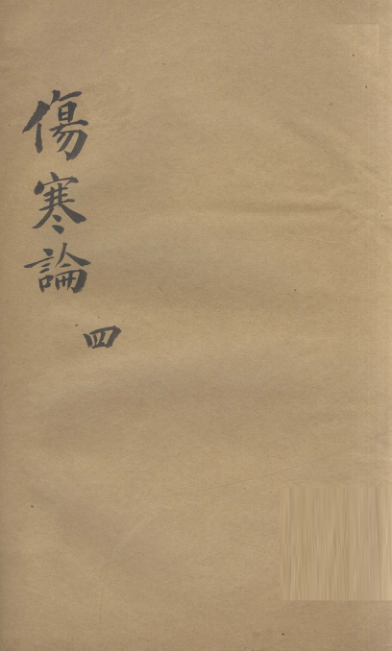 傷寒論
四